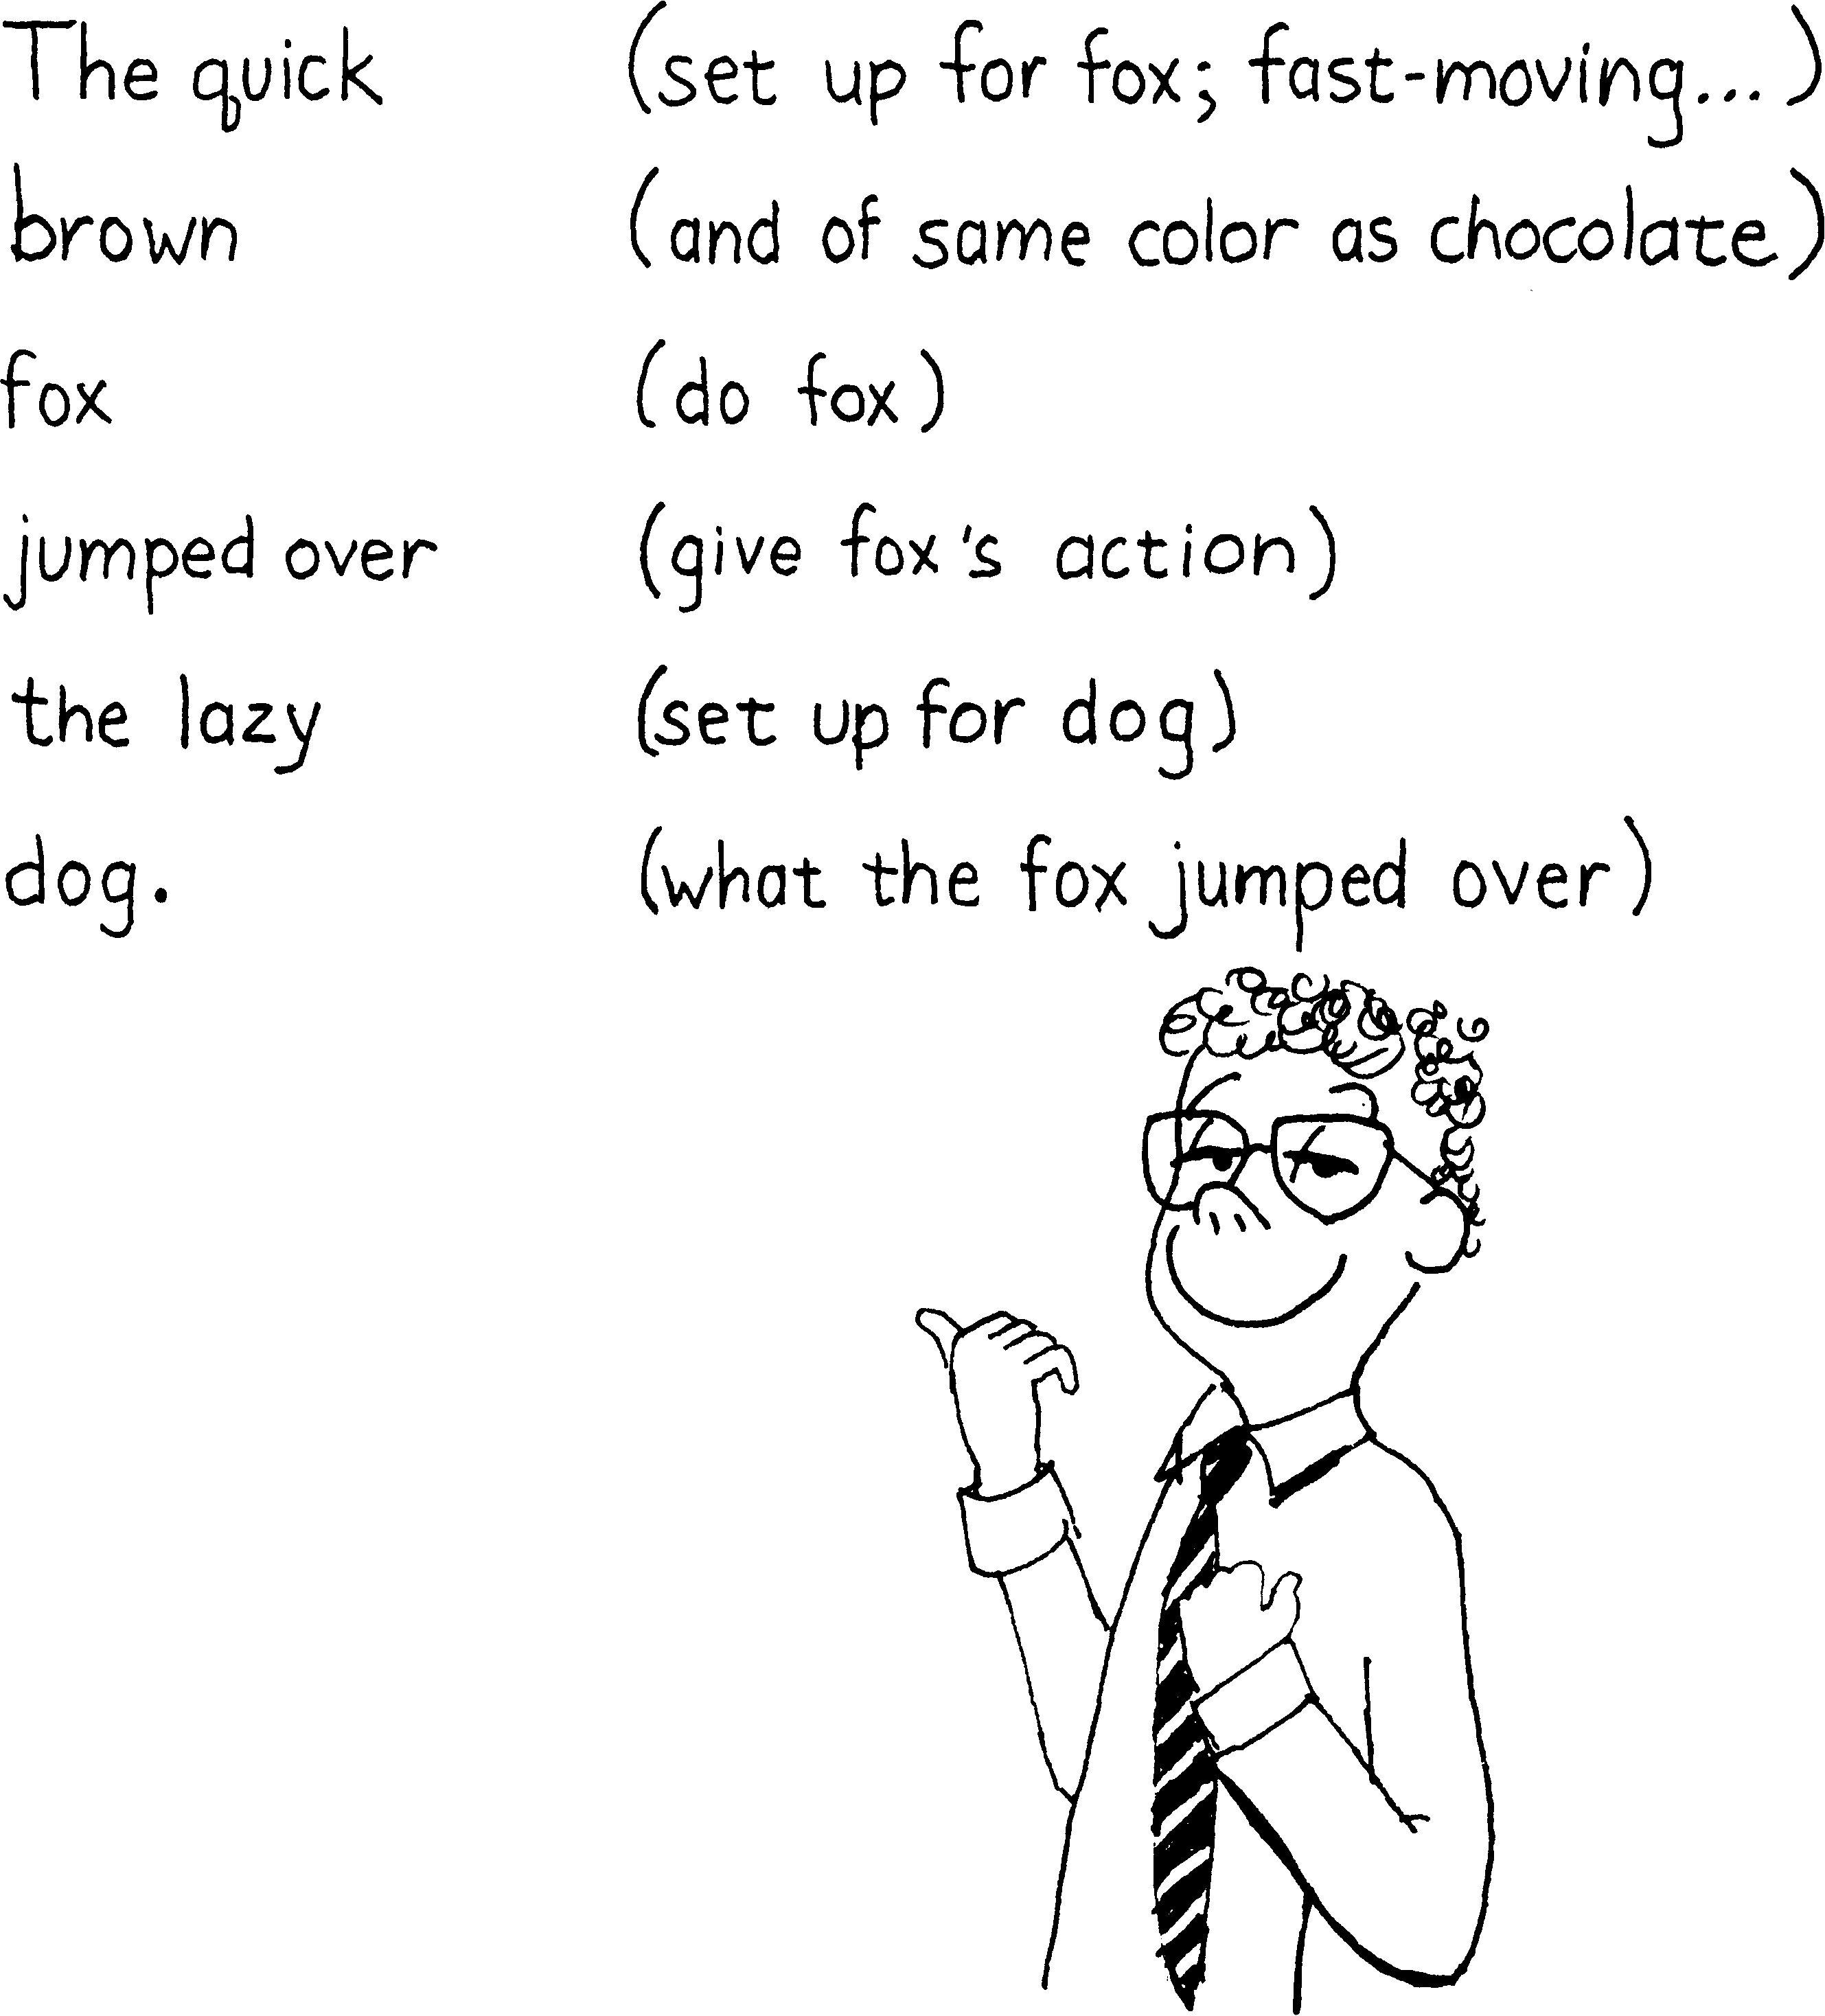 The quick (set up for fox; fast-moving...)
brown (and of same color as chocolate)
fox (do fox)
jumped over (give fox's action)
the lazy (set up for dog)
dog. (what the fox jumped over)